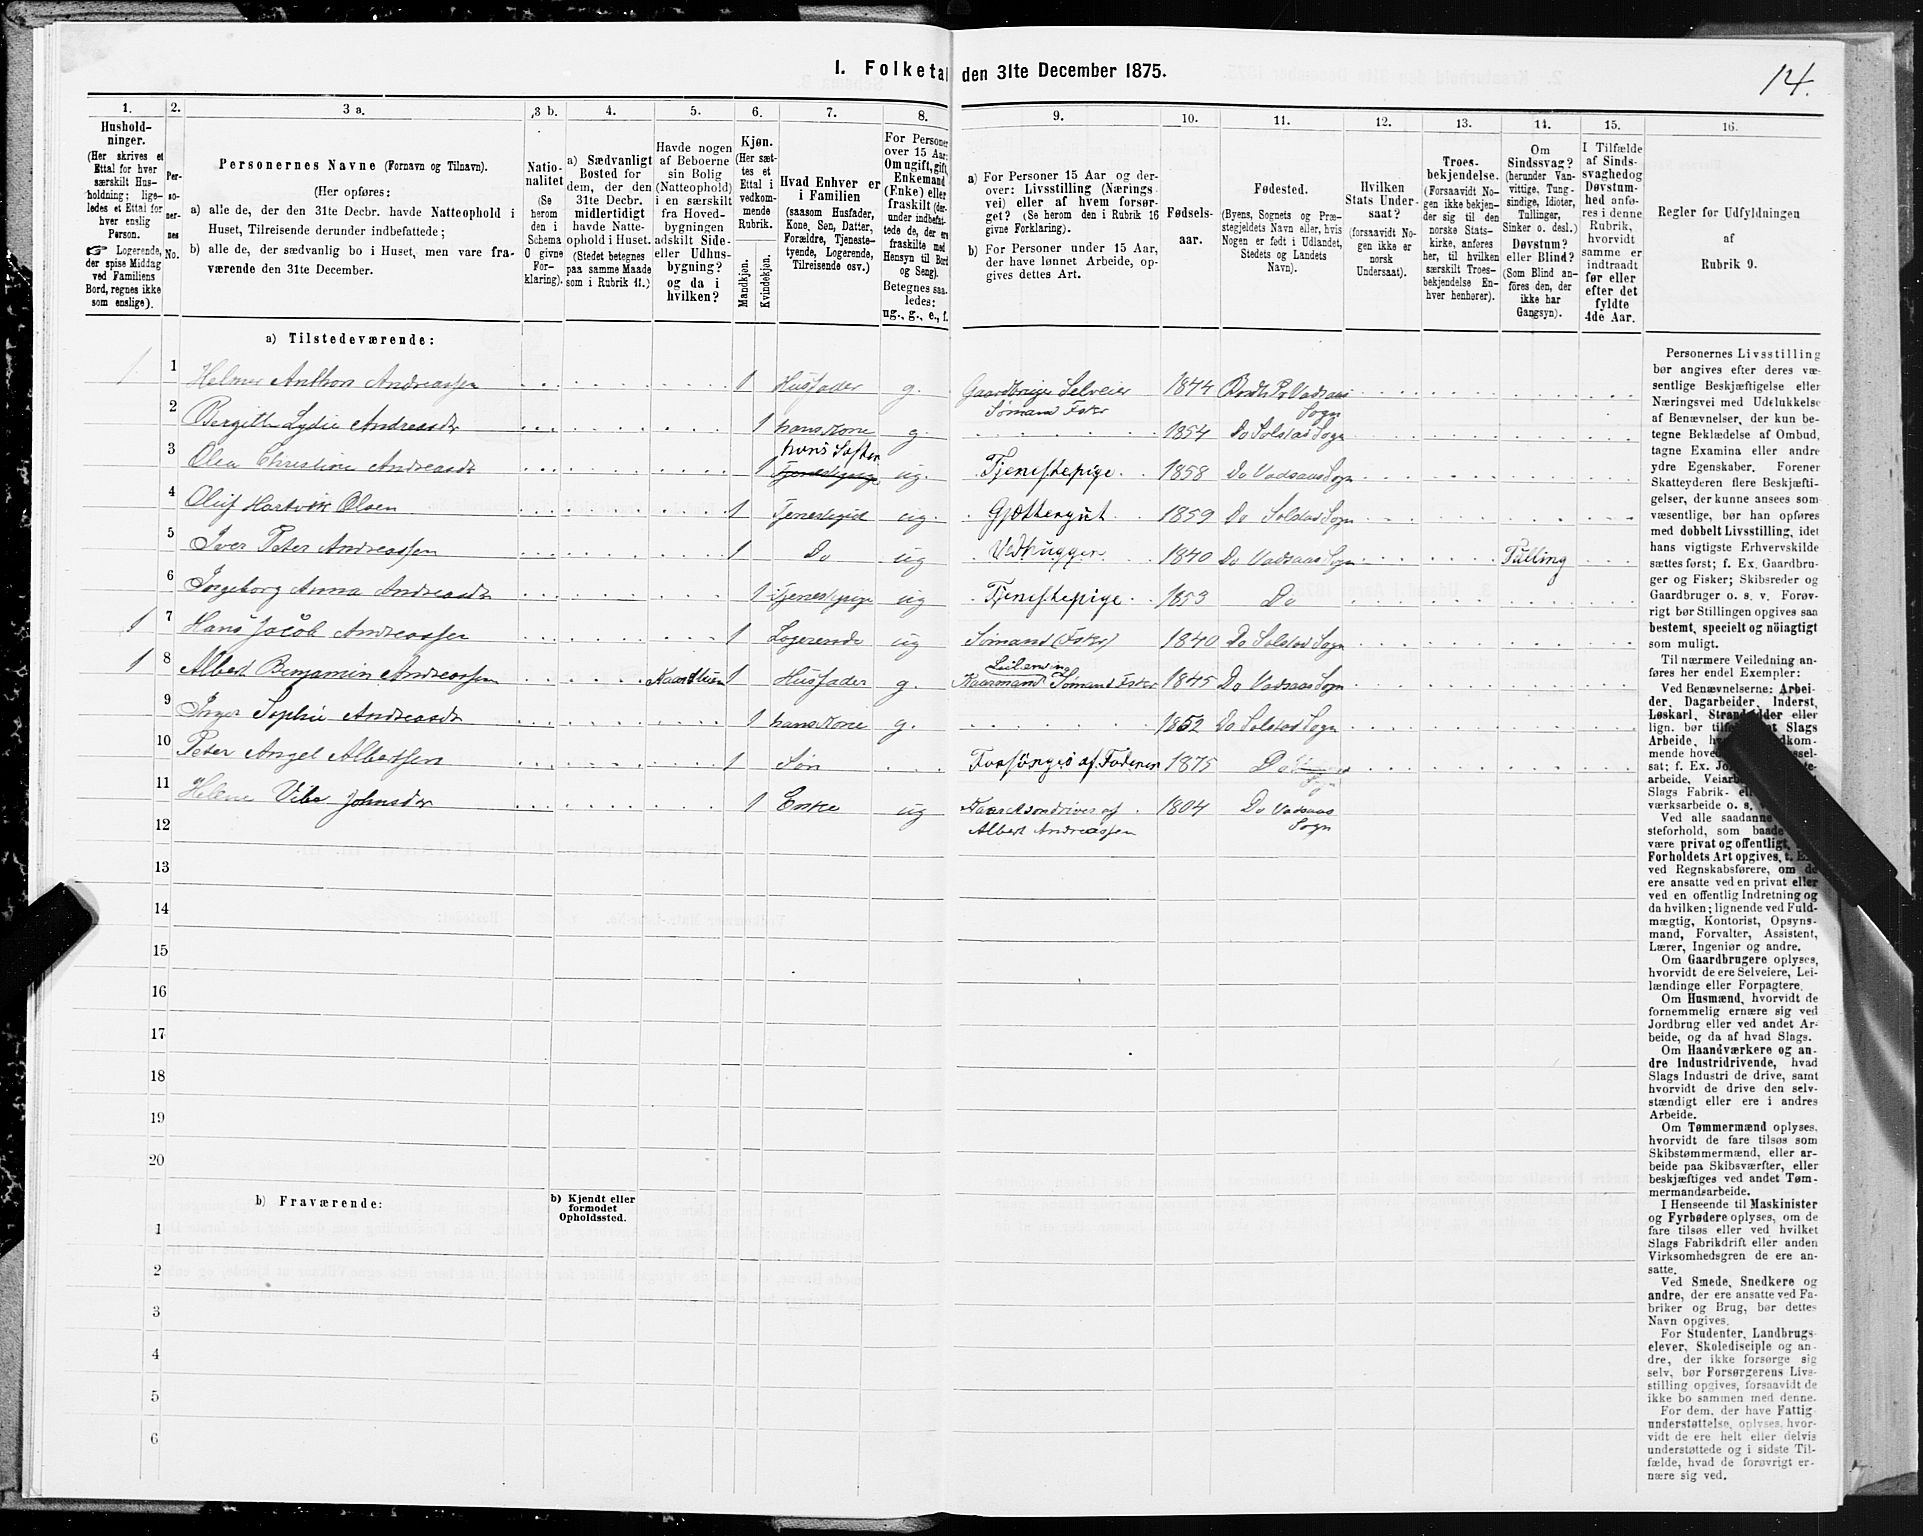 14.
I. Folketal den 31te December 1875.
1.
Hushold-
ninger.
(Her skrives et
Ettal for hver
særskilt Hus-
holdning; lige-
ledes et Ettal for
hver enslig
Person.
☞ Logerende,
der spise Middag
ved Familiens
Bord, regnes ikke
som enslige).
2.
Per-
so-
ner-
nes
No.
3 a.
Personernes Navne (Fornavn og Tilnavn).
(Her opføres:
a) alle de, der den 31te Decbr. havde Natteophold i
Huset, Tilreisende derunder indbefattede;
b) alle de, der sædvanlig bo i Huset, men vare fra-
værende den 31te December.
3 b.
Natio-
nalitet
(Se
herom
den i
Schema
O givne
For-
klaring).
4.
a) Sædvanligt
Bosted for
dem, der den
31te Decbr.
midlertidigt
havde Natte-
ophold i Huset.
(Stedet betegnes
paa samme Maade
som i Rubrik 11.)
5.
Havde nogen
af Beboerne
sin Bolig
(Natteophold)
i en særskilt
fra Hoved-
bygningen
adskilt Side-
eller Udhus-
bygning?
og da i
hvilken?
6.
Kjøn.
(Her sæt-
tes et
Ettal i
vedkom-
mende
Rubrik.
Mandkjøn.
Kvindekjøn.
7.
Hvad Enhver er
i Familien
(saasom Husfader,
Kone, Søn, Datter,
Forældre, Tjeneste-
tyende, Logerende,
Tilreisende osv.)
8.
For Personer
over 15 Aar:
Om ugift, gift,
Enkemand
(Enke) eller
fraskilt (der-
under indbefat-
tede de, der ere
fraskilte med
Hensyn til Bord
og Seng).
Betegnes saa-
ledes:
ug., g., e., f.
9.
a) For Personer 15 Aar og der-
over: Livsstilling (Nærings-
vei) eller af hvem forsør-
get? (Se herom den i Rubrik 16
givne Forklaring).
b) For Personer under 15 Aar,
der have lønnet Arbeide, op-
gives dettes Art.
10.
Fødsels-
aar.
11.
Fødested.
(Byens, Sognets og Præ-
stegjeldets Navn eller, hvis
Nogen er født i Udlandet,
Stedets og Landets
Navn).
12.
Hvilken
Stats Under-
saat?
(forsaavidt No-
gen ikke er
norsk
Undersaat).
13.
Troes-
bekjendelse.
(Forsaavidt No-
gen ikke bekjen-
der sig til den
norske Stats-
kirke, anføres
her, til hvilken
særskilt Troes-
bekjendelse En-
hver henhører).
14.
Om
Sindssvag?
(herunder Van-
vittige, Tung-
sindige, Idioter,
Tullinger,
Sinker o. desl.)
Døvstum?
eller Blind?
(Som Blind an-
føres den, der
ikke har
Gangsyn).
15.
I Tilfælde
af Sinds-
svaghed og
Døvstum-
hed anfø-
res i denne
Rubrik,
hvorvidt
samme er
indtraadt
før eller
efter det
fyldte
4de Aar.
16.
Regler for Udfyldningen
af
Rubrik 9.
a) Tilstedeværende:
1 1 Helmer Anthon Andreassen 1 Husfader g. Gaardbruger Selveier 1844
Sømand Fsker Sogn
2 Bergitte Lydie Andreasdr 1 hans Kone g. 1854 Do Solstad Sogn
hans Søster
3 Olea Christine Andreasdr 1 Tjenestepige ug. Tjenestepige. 1858 Do Vadsaas Sogn
4 Oluf Hartvik Olsen 1 Tjenestegut ug. Gjættergut 1859 Do Solstad Sogn
5 Iver Peter Andreassen 1 Do ug Vedhugger 1840 Do Vadsaas Sogn Tulling
6 Ingeborg Anna Andreasdr 1 Tjenestepige ug Tjenestepige. 1853 Do
1 7 Hans Jacob Andreassen 1 Logerende ug Sømand (Fsker) 1840 Do Solstad Sogn
Leilending
1 8 Albert Benjamin Andreassen 1 Husfader g. Kaarmand Sømand Fsker 1845 Do Vadsaas Sogn
9 Inger Sophie Andreasdr 1 hans Kone g. 1852 Do Solstad Sogn
10 Peter Angel Albertsen 1 Søn Forsørges af Faderen 1875 Do
11 Helene Vibe Johnsdr 1 Enke ug 1804 Do Vadsaas
12 Albert Andreassen Sogn
13
14
15
16
17
18
19
20
b) Fraværende:
b) Kjendt eller
formodet
Opholdssted.
1
2
3
4
5
6
Personernes Livsstilling
bør angives efter deres væ-
sentlige Beskjæftigelse eller
Næringsvei med Udelukkelse
af Benævnelser, der kun be-
tegne Beklædelse af Ombud,
tagne Examina eller andre
ydre Egenskaber. Forener
Skatteyderen flere Beskjæfti-
gelser, der kunne ansees som
væsentlige, bør han opføres
med dobbelt Livsstilling, idet
hans vigtigste Erhvervskilde
sættes først; f. Ex. Gaardbru-
ger og Fisker; Skibsreder og
Gaardbruger o. s. v. Forøv-
rigt bør Stillingen opgives saa
bestemt, specielt og nöiagtigt
som muligt.
Til nærmere Veiledning an-
føres her endel Exempler:
Ved Benævnelserne: Arbei-
der, Dagarbeider, Inderst,
Løskarl, Strandsidder eller
lign. bør
Slags Fabrik-
værksarbeide o. s.
Ved alle saadanne
steforhold, som baade
være privat og offentligt,
Forholdets Art opgives, t. Ex.
ved Regnskabsførere, om de
ere ansatte ved en privat eller
ved en offentlig Indretning og
da hvilken; lignende ved Fuld-
mægtig, Kontorist, Opsyns-
mand, Forvalter, Assistent,
Lærer, Ingeniør og andre.
Om Gaardbrugere oplyses,
hvorvidt de ere Selveiere, Lei-
lændinge eller Forpagtere.
Om Husmænd, hvorvidt de
fornemmelig ernære sig ved
Jordbrug eller ved andet Ar-
beide, og da af hvad Slags.
Om Haandværkere og an-
dre Industridrivende, hvad
Slags Industri de drive, samt
hvorvidt de drive den selv-
stændigt eller ere i andres
Arbeide.
Om Tømmermænd oplyses,
hvorvidt de fare tilsøs som
Skibstømmermænd, eller ar-
beide paa Skibsværfter, eller
beskjæftiges ved andet Tøm-
mermandsarbeide.
I Henseende til Maskinister
og Fyrbødere oplyses, om de
fare tilsøs eller ved hvilket
Slags Fabrikdrift eller anden
Virksomhedsgren de ere an-
satte.
Ved Smede, Snedkere og
andre, der ere ansatte ved Fa-
briker og Brug, bør dettes
Navn opgives.
For Studenter, Landbrugs-
elever, Skoledisciple og an-
dre, der ikke forsørge sig
selv, bør Forsørgerens Livs-
stilling opgives, forsaavidt de
ikke bo sammen med denne.
For dem, der have Fattig-
understøttelse, oplyses, hvor-
vidt de ere helt eller delvis
understøttede og i sidste Til-
fælde, hvad de forøvrigt er-
nære sig ved.